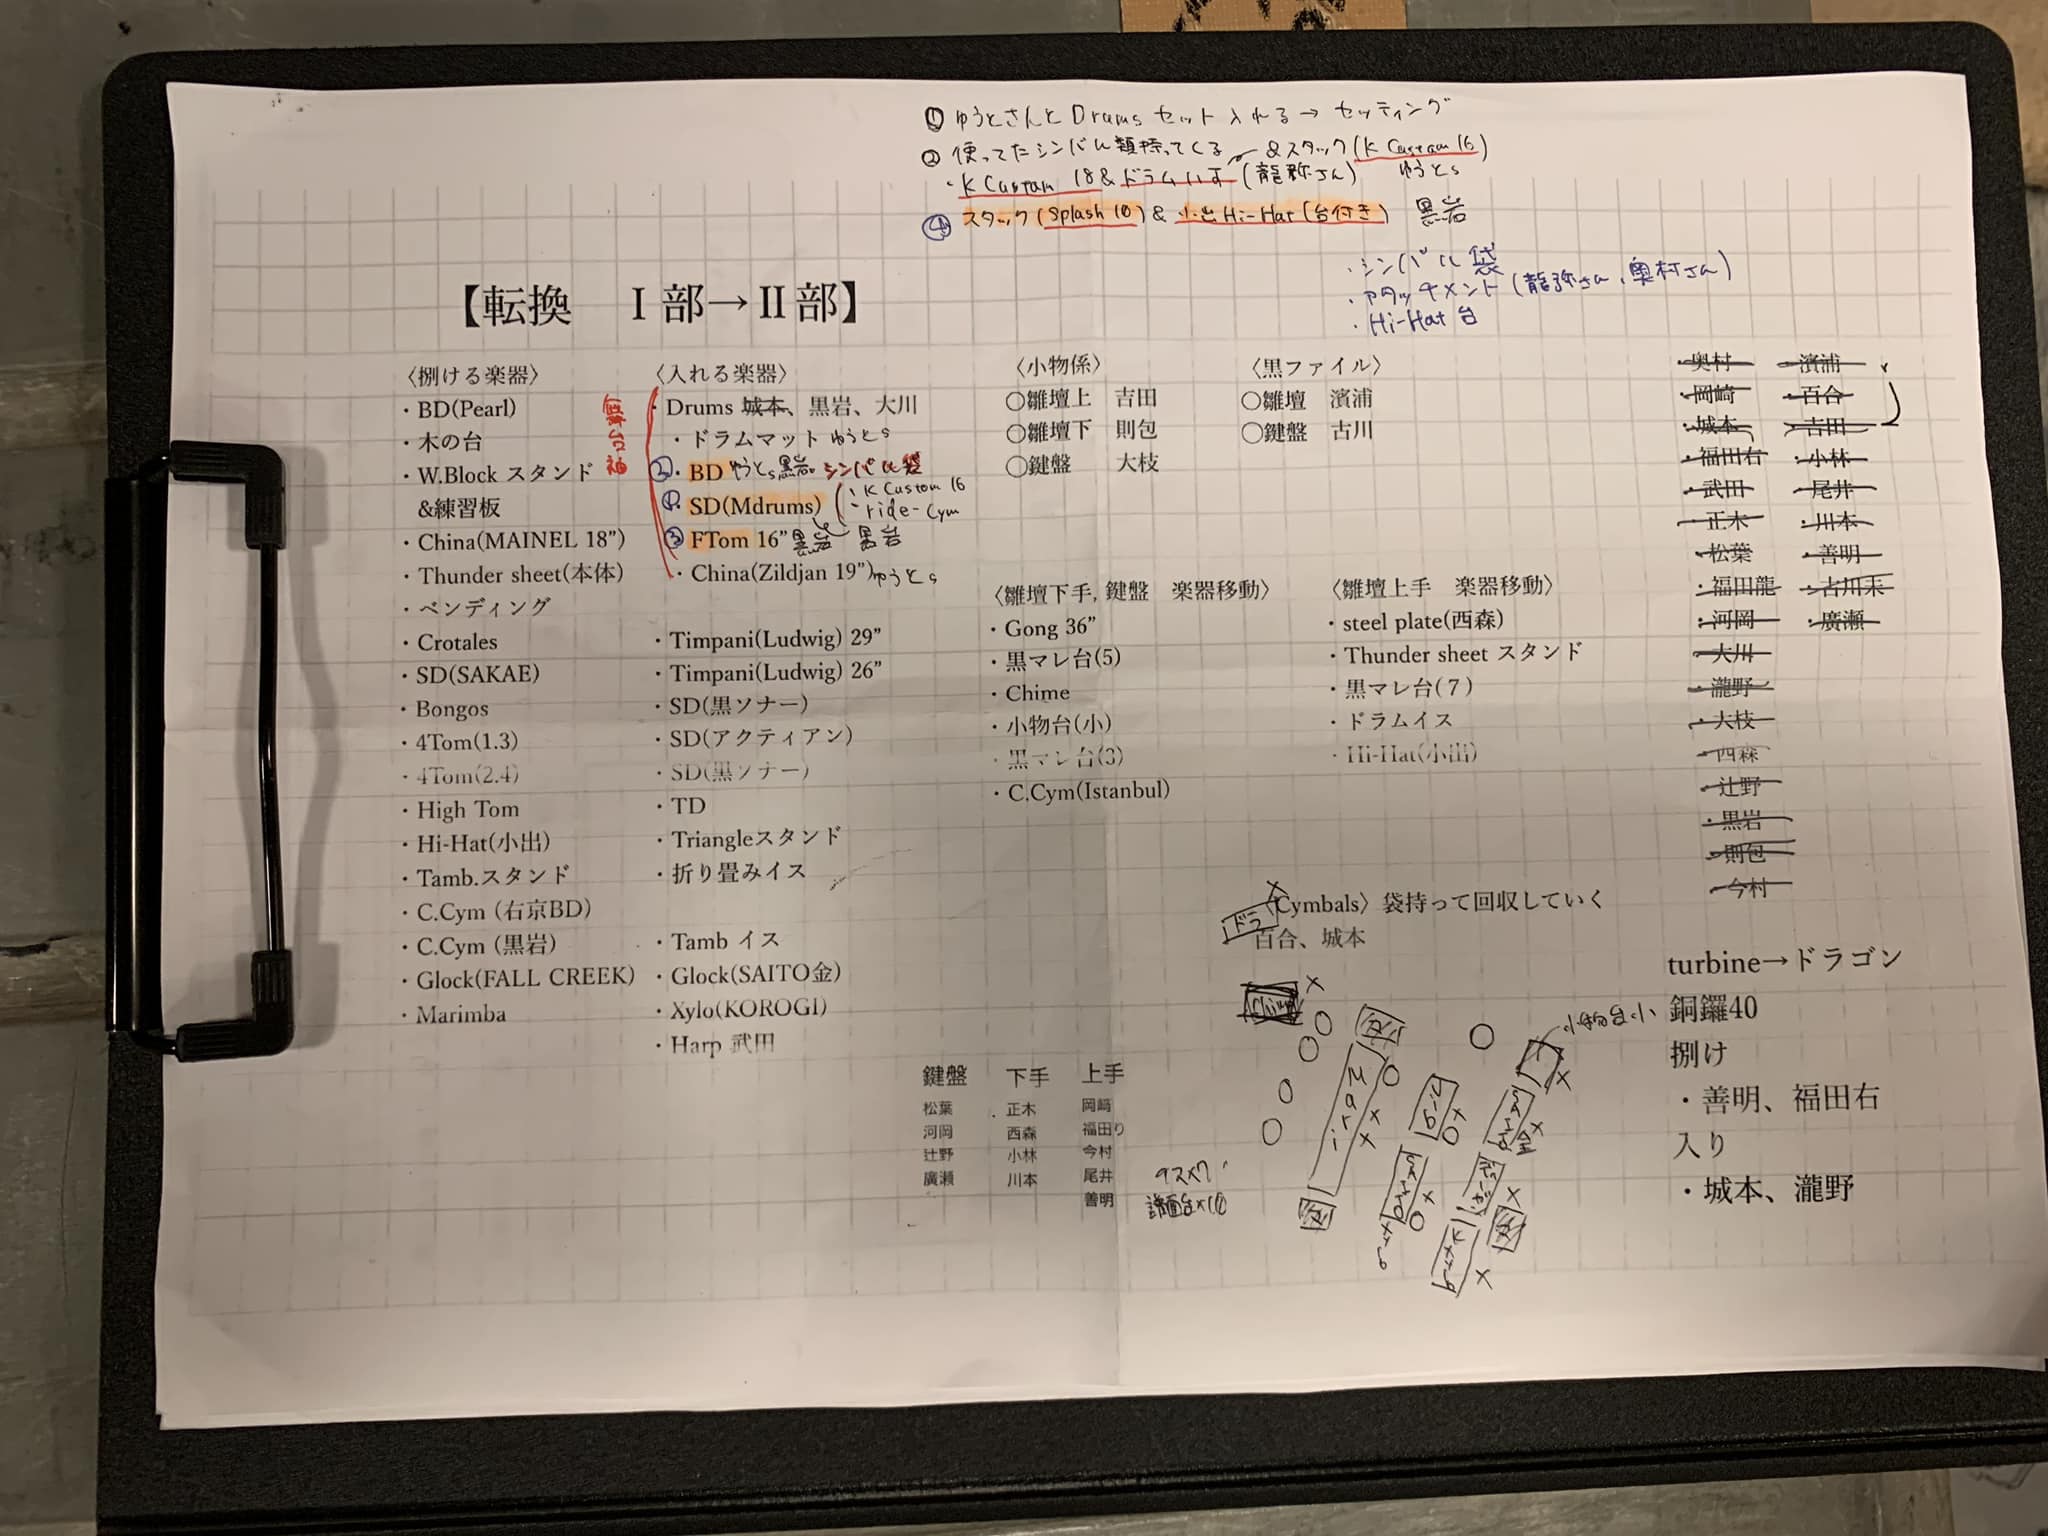 ① ゆうとさんと Drums セット 入れる → セッティング
② 使ってたシンバル類持ってくる & スタック(K Custom 16)
・K Custom 18 & ドラムいす (龍弥さん) ゆうとs
④ スタック(Splash 10) & 小出Hi-Hat(台付き) 黒岩
・シンバル袋
・アタッチメント(龍弥さん、奥村さん)
・Hi-Hat台
【転換 Ⅰ部→Ⅱ部】
〈捌ける楽器〉
・BD(Pearl)
・木の台
・W.Block スタンド
&練習板
・China(MAINEL 18”)
・Thunder sheet(本体)
・ベンディング
・Crotales
・SD(SAKAE)
・Bongos
・4Tom(1.3)
・4Tom(2.4)
・High Tom
・Hi-Hat(小出)
・Tamb.スタンド
・C.Cym (右京BD)
・C.Cym (黒岩)
・Glock(FALL CREEK)
・Marimba
舞台袖
〈入れる楽器〉
・Drums 城本、黒岩、大川
・ドラムマット ゆうとs
②・BD ゆうとs 黒岩 シンバル袋
①・SD(Mdrums) ・K Custom 16
・ride-Cym
③ FTom 16” 黒岩 黒岩
・China(Zildjan 19”) ゆうとs
・Timpani(Ludwig) 29”
・Timpani(Ludwig) 26”
・SD(黒ソナー)
・SD(アクティアン)
・SD(黒ソナー)
・TD
・Triangleスタンド
・折り畳みイス
・Tamb イス
・Glock(SAITO金)
・Xylo(KOROGI)
・Harp 武田
〈小物係〉
○雛壇上 吉田
○雛壇下 則包
○鍵盤 大枝
〈黒ファイル〉
○雛壇 濱浦
○鍵盤 古川
〈雛壇下手, 鍵盤 楽器移動〉
・Gong 36”
・黒マレ台(5)
・Chime
・小物台(小)
・黒マレ台(3)
・C.Cym(Istanbul)
〈雛壇上手 楽器移動〉
・steel plate(西森)
・Thunder sheet スタンド
・黒マレ台(７)
・ドラムイス
・Hi-Hat(小出)
・奥村 ・濱浦
・岡崎 ・百合
・城本 ・吉田
・福田右 ・小林
・武田 ・尾井
・正木 ・川本
・松葉 ・善明
・福田龍 ・古川未
・河岡 ・廣瀬
・大川
・瀧野
・大枝
・西森
・辻野
・黒岩
・則包
・今村
〈Cymbals〉袋持って回収していく
百合、城本
ドラ
小物台小
金
鍵盤 下手 上手
松葉 正木 岡﨑
河岡 西森 福田り
辻野 小林 今村
廣瀬 川本 尾井
善明
デスク
譜面台×10
turbine→ドラゴン
銅鑼40
捌け
・善明、福田右
入り
・城本、瀧野